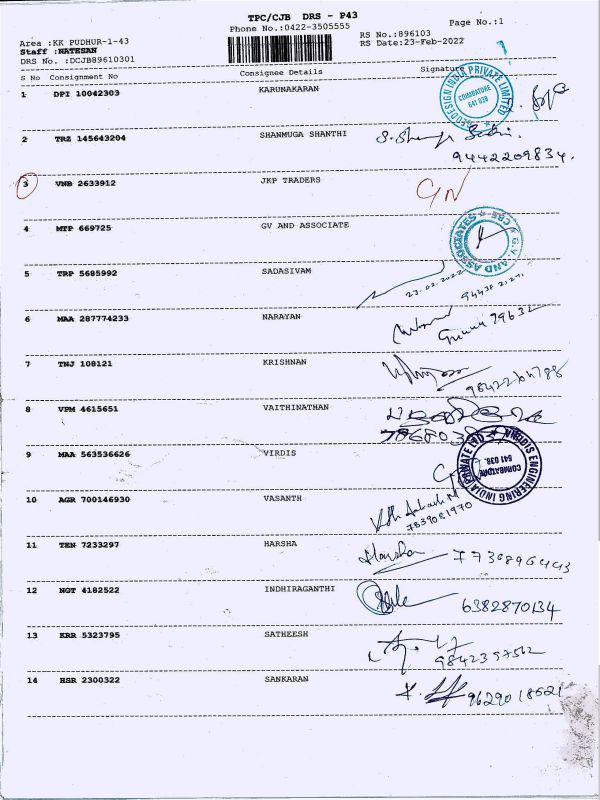 TPC/CJB DRS - P43
Phone No.:0422-3505555
Page No.:1
Area :KK PUDHUR-1-43
RS No.:896103
Staff :NATESAN
RS Date:23-Feb-2022
DRS No. :DCJB89610301
S No Consignment No Consignee Details Signature
1 DPI 10042303 KARUNAKARAN
COIMBATORE
641 038
2 TRZ 145643204 SHANMUGA SHANTHI
9442209834.
3 VNB 2633912 JKP TRADERS
4 MTP 669725 GV AND ASSOCIATE
G.V. AND ASSOCIATES ★ CBE ★
5 TRP 5685992 SADASIVAM
23.02.2022
6 MAA 287774233 NARAYAN
7 TNJ 108121 KRISHNAN
8 VPM 4615651 VAITHINATHAN
9 MAA 563536626 VIRDIS
VIRDIS ENGINEERING INDIA PRIVATE LTD
COIMBATORE
641 038.
10 AGR 700146930 VASANTH
7539081970
11 TEN 7233297 HARSHA
Harsha
12 NGT 4182522 INDHIRAGANTHI
6382870134
13 KRR 5323795 SATHEESH
14 HSR 2300322 SANKARAN